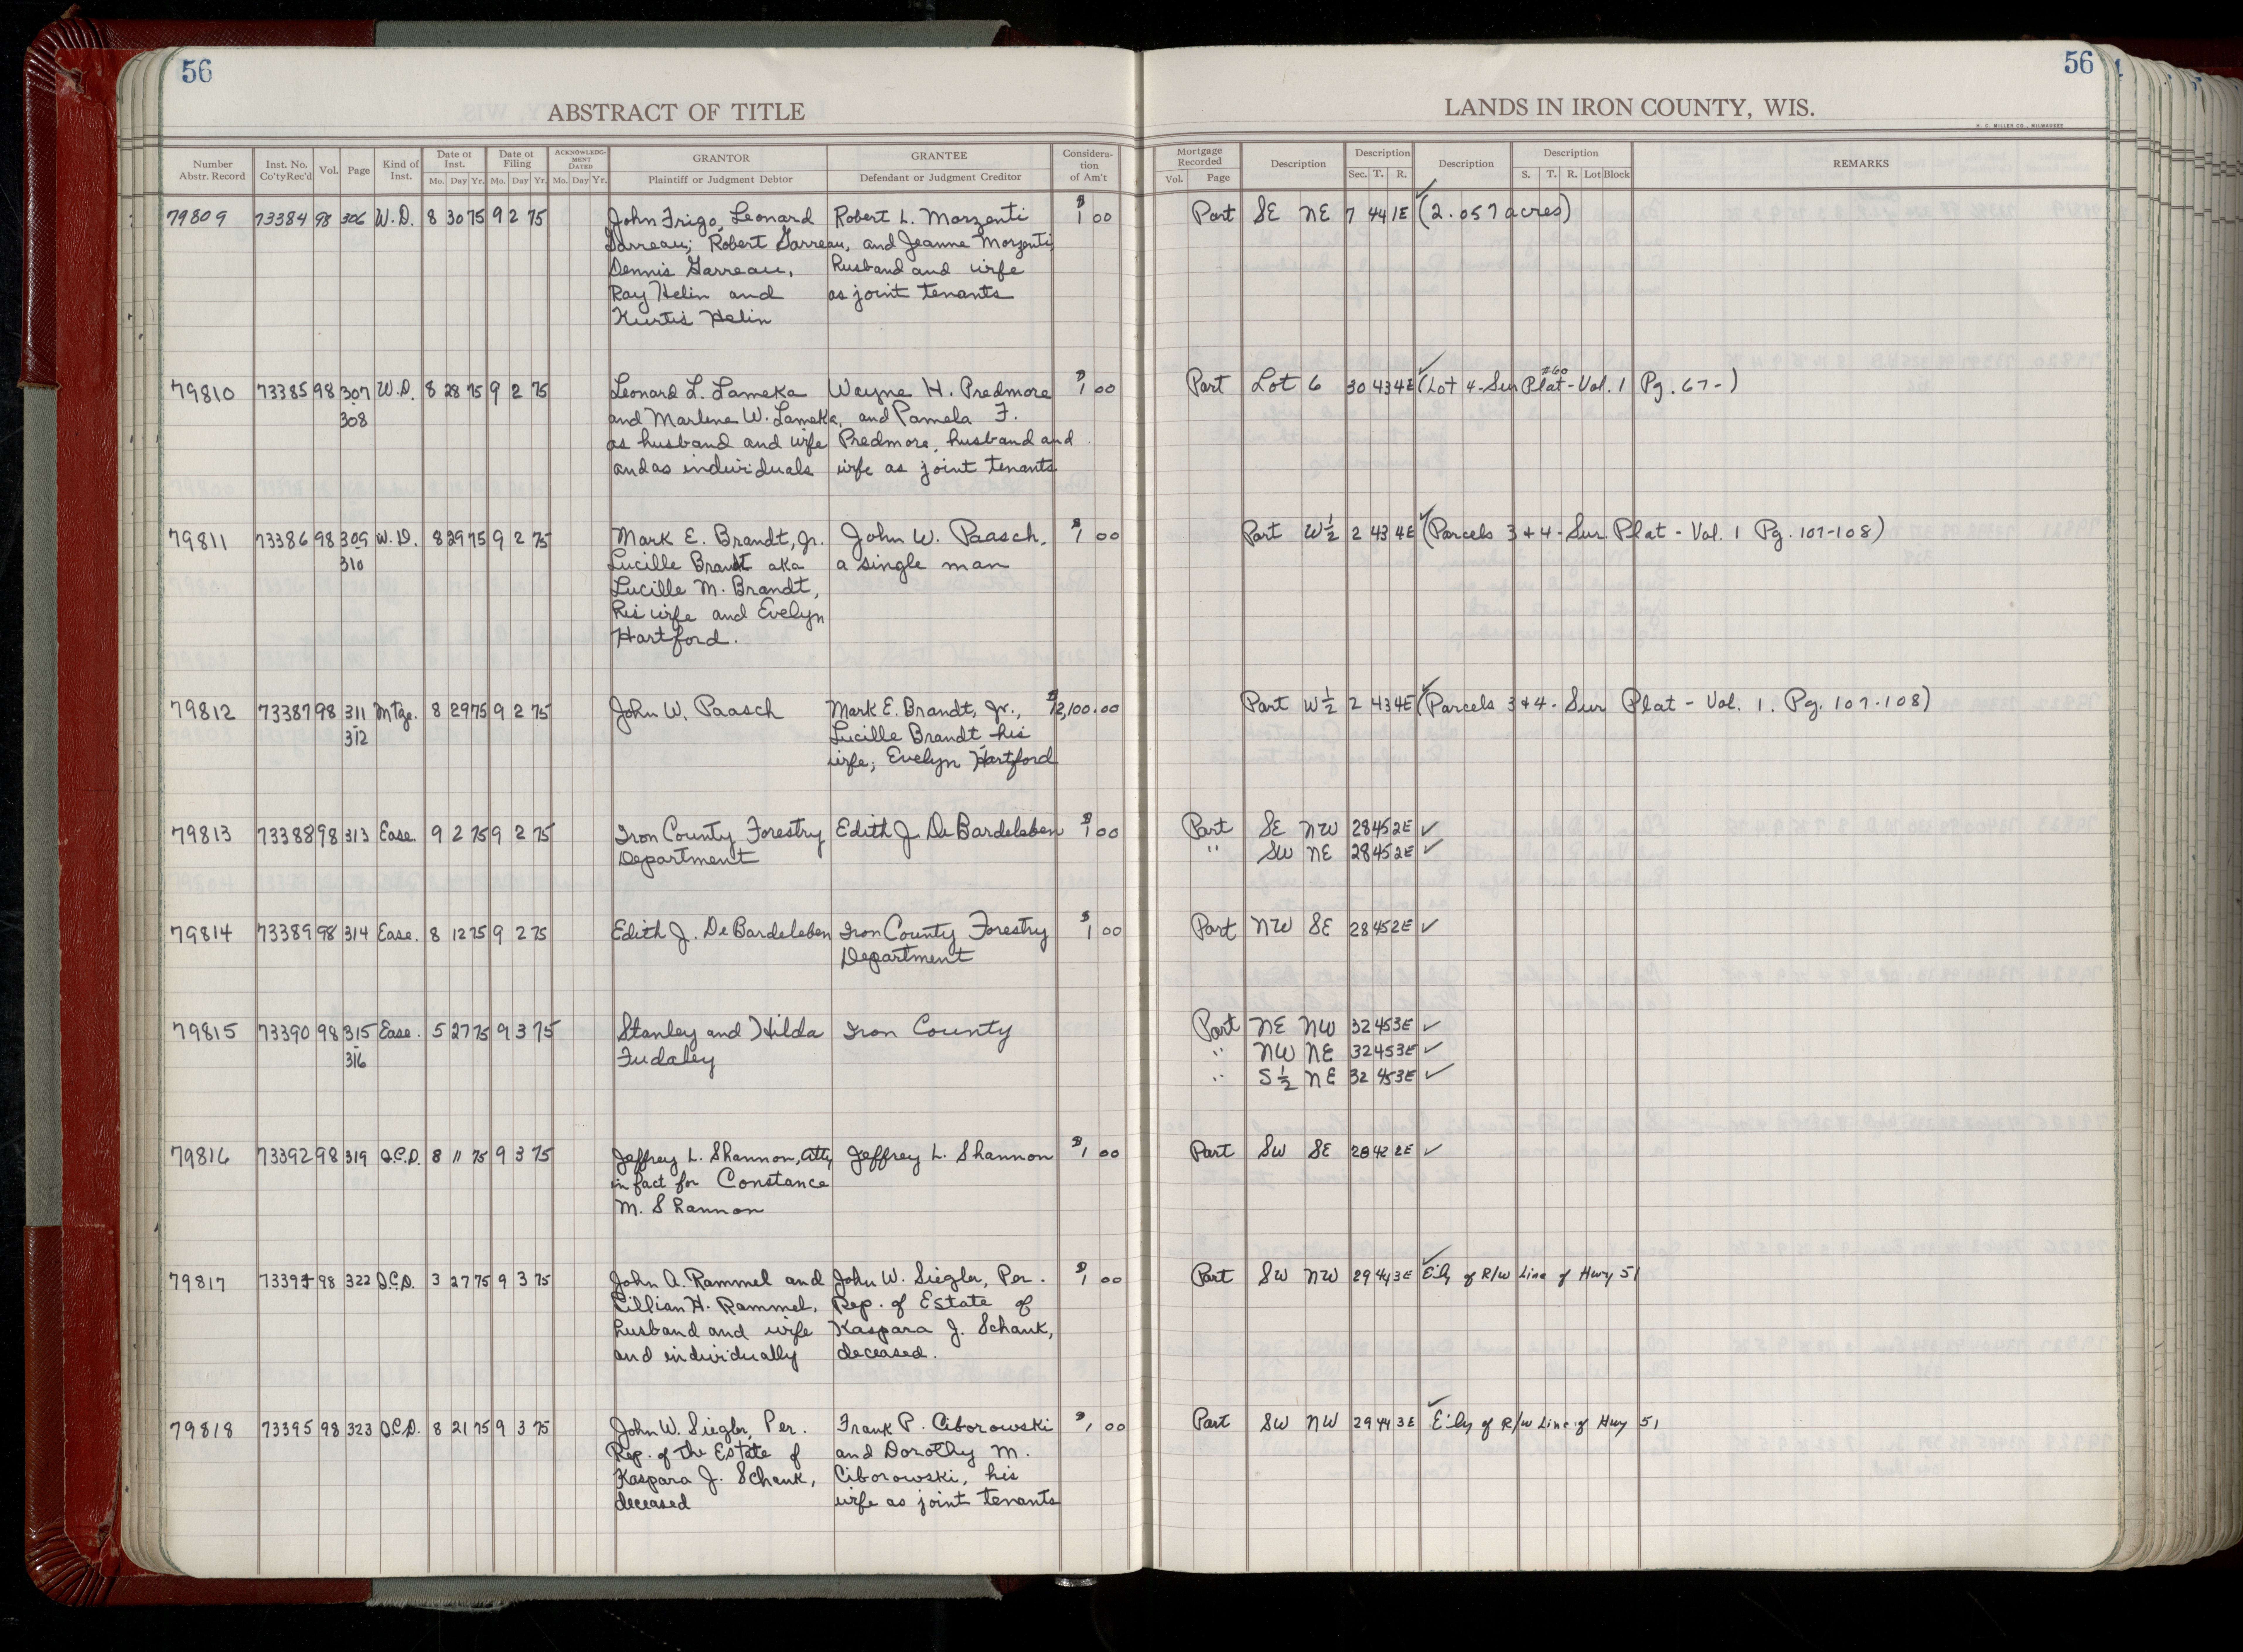 56
56
ABSTRACT OF TITLE
LANDS IN IRON COUNTY, WIS.
H. C. MILLER CO., MILWAUKEE
Number Abstr. Record Inst. No. Co'ty Rec'd Vol. Page Kind of Inst. Date of Inst. Mo. Day Yr. Date of Filing Mo. Day Yr. ACKNOWLEDGMENT DATED Mo. Day Yr. GRANTOR Plaintiff or Judgment Debtor GRANTEE Defendant or Judgment Creditor Consideration of Am't
Mortgage Recorded Vol. Page Description Description Sec. T. R. Description Description S. T. R. Lot Block REMARKS
79809 73384 98 306 W.D. 8 30 75 9 2 75 John Frigo, Leonard Robert L. Morzenti $1 00 Part SE NE 7 44 1E (2.057 acres)
Garreau; Robert Garreau, and Jeanne Morzenti,
Dennis Garreau, husband and wife
Ray Helin and as joint tenants
Kurtis Helin
79810 73385 98 307 W.D. 8 28 75 9 2 75 Leonard L. Lameka Wayne H. Predmore $1 00 Part Lot 6 30 43 4E (Lot 4-Sur Plat #60 - Vol. 1 Pg. 67-)
308 and Marlene W. Lameka, and Pamela F.
as husband and wife Predmore, husband and
and as individuals wife as joint tenants
79811 73386 98 309 W.D. 8 29 75 9 2 75 Mark E. Brandt, Jr. John W. Paasch, $1 00 Part W½ 2 43 4E (Parcels 3+4-Sur. Plat - Vol. 1 Pg. 107-108)
310 Lucille Brandt aka a single man
Lucille M. Brandt,
his wife and Evelyn
Hartford.
79812 73387 98 311 Mtge. 8 29 75 9 2 75 John W. Paasch Mark E. Brandt, Jr., $12,100.00 Part W½ 2 43 4E (Parcels 3+4-Sur Plat - Vol. 1. Pg. 107-108)
312 Lucille Brandt, his
wife; Evelyn Hartford
79813 73388 98 313 Ease. 9 2 75 9 2 75 Iron County Forestry Edith J. DeBardeleben $1 00 Part SE NW 28 45 2E ✓
Department " SW NE 28 45 2E ✓
79814 73389 98 314 Ease. 8 12 75 9 2 75 Edith J. DeBardeleben Iron County Forestry $1 00 Part NW SE 28 45 2E ✓
Department
79815 73390 98 315 Ease. 5 27 75 9 3 75 Stanley and Hilda Iron County Part NE NW 32 45 3E ✓
316 Fudaley " NW NE 32 45 3E ✓
" S½ NE 32 45 3E ✓
79816 73392 98 319 Q.C.D. 8 11 75 9 3 75 Jeffrey L. Shannon, Atty Jeffrey L. Shannon $1 00 Part SW SE 28 42 2E ✓
in fact for Constance
M. Shannon
79817 98 322 Q.C.D. 3 27 75 9 3 75 John A. Rammel and John W. Siegler, Per. $1 00 Part SW NW 29 44 3E E'ly of R/W Line of Hwy 51
Lillian H. Rammel, Rep. of Estate of
husband and wife Kaspara J. Schank,
and individually deceased.
79818 73395 98 323 Q.C.D. 8 21 75 9 3 75 John W. Siegler, Per. Frank P. Ciborowski $1 00 Part SW NW 29 44 3E E'ly of R/W Line of Hwy 51
Rep. of the Estate of and Dorothy M.
Kaspara J. Schank, Ciborowski, his
deceased wife as joint tenants